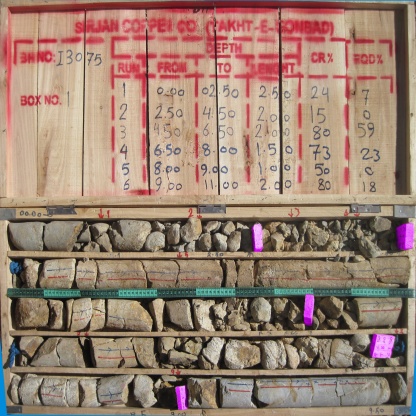 SIRJAN COPPER CO. (TAKHT-E-GONBAD)
DEPTH
BH NO: I3075 RUN FROM TO LENGHT CR% RQD%
BOX NO. 1
1 0.00 02.50 2.50 24 7
2 2.50 4.50 2.00 15 0
3 4.50 6.50 2.00 80 59
4 6.50 8.00 1.50 73 23
5 8.00 9.00 1.00 50 0
6 9.00 11.00 2.00 80 18
00.00